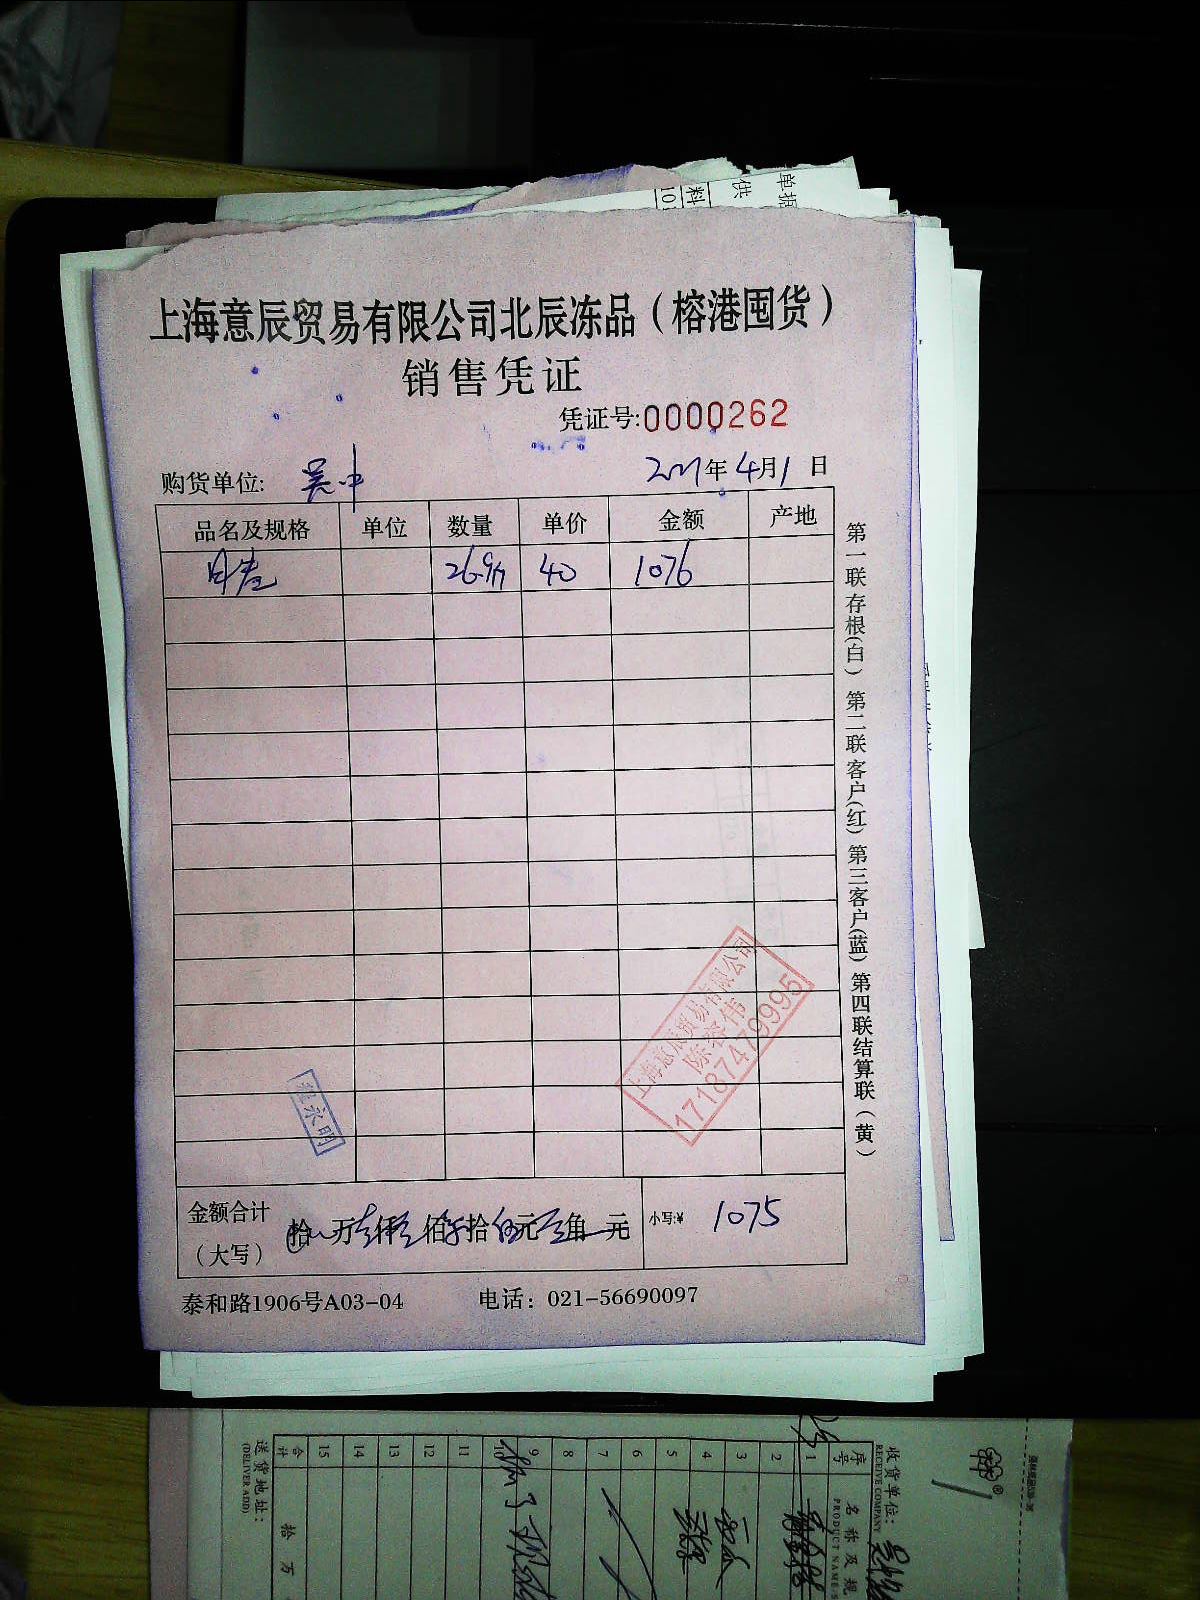 单据
供
料
10
上海意辰贸易有限公司北辰冻品（榕港囤货）
销售凭证
凭证号:0000262
购货单位: 吴中
2021年4月1日
品名及规格 单位 数量 单价 金额 产地
26.9斤 40 1076
第一联存根(白) 第二联客户(红) 第三客户(蓝) 第四联结算联(黄)
上海意辰贸易有限公司
陈容伟
17187479995
程永明
金额合计
（大写）
拾 万 仟 佰 拾 伍元 角 元
小写:¥ 1075
泰和路1906号A03-04 电话：021-56690097
收货单位:
RECEIVE COMPANY
序号 名称及规
PRODUCT NAME
1
2
3
4
5
6
7
8
9
10
11
12
13
14
15
合计 拾 万
送货地址:
(DELIVER ADD)